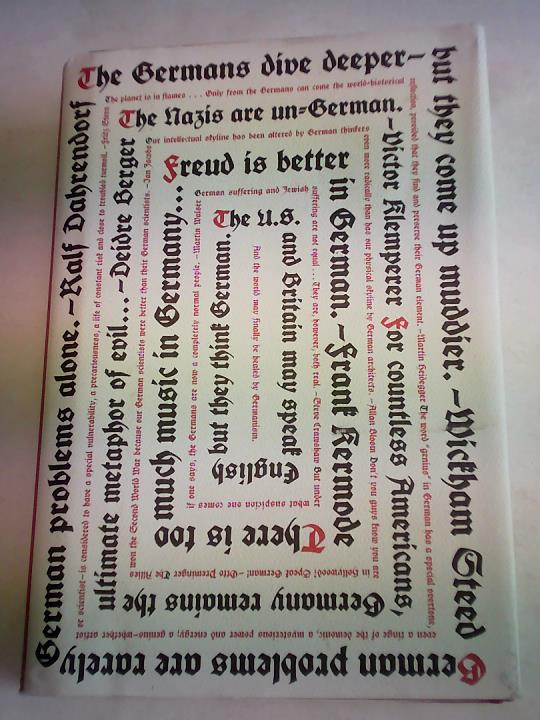 The Germans dive deeper–
but they come up muddier. –Wickham Steed
German problems are rarely
German problems alone.–Ralf Dahrendorf
The planet is in flames . . . Only from the Germans can come the world-historical
reflection, provided that they find and preserve their German element. –Martin Heidegger The word "genius" in German has a special overtone,
even a tinge of the demonic, a mysterious power and energy; a genius–whether artist
or scientist–is considered to have a special vulnerability, a precariousness, a life of constant risk and close to troubled turmoil. –Fritz Stern
The Nazis are un-German.
–Victor Klemperer For countless Americans,
Germany remains the
ultimate metaphor of evil... –Deidre Berger
Our intellectual skyline has been altered by German thinkers
even more radically than has our physical skyline by German architects. –Allan Bloom Don't you guys know you are
in Hollywood? Speak German! –Otto Preminger The Allies
won the Second World War because our German scientists were better than their German scientists. –Ian Jacobs
Freud is better
in German. –Frank Kermode
There is too
much music in Germany...
German suffering and Jewish
suffering are not equal . . . They are, however, both real. –Steve Crawshaw But under
what suspicion one comes
if one says, the Germans are now a completely normal people. –Martin Walser
The U.S.
and Britain may speak
English
but they think German.
And the world may finally be healed by Germanism.